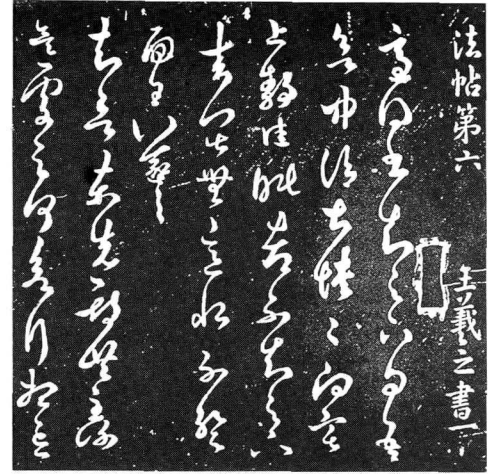 法帖第六 王羲之書一
適得書知足下問吾
欲中冷甚憒憒向宅
上靜佳眠都不知足下
來門甚無意恨不暫
面王羲之
知欲東先期共至謝
奕處云何欲行想忘